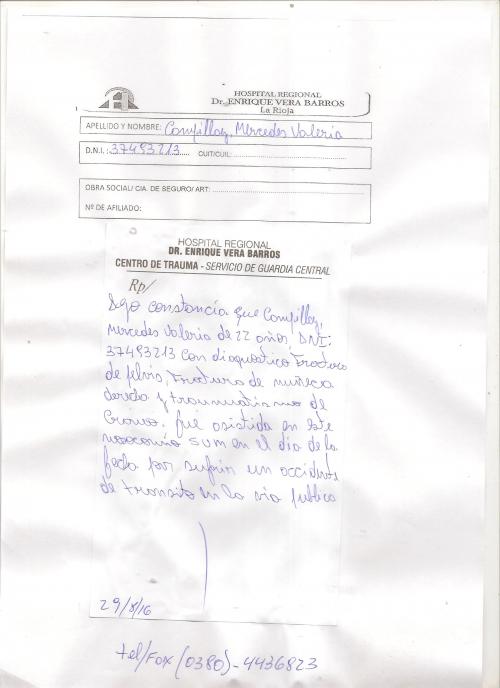 HOSPITAL REGIONAL
Dr. ENRIQUE VERA BARROS
La Rioja
APELLIDO Y NOMBRE: Compillay, Mercedes Valeria
D.N.I.: 37493213 CUIT/CUIL:
OBRA SOCIAL/ CIA. DE SEGURO/ ART:
Nº DE AFILIADO:
HOSPITAL REGIONAL
DR. ENRIQUE VERA BARROS
CENTRO DE TRAUMA - SERVICIO DE GUARDIA CENTRAL
Rp/
Dejo constancia que Compillay,
Mercedes Valeria de 22 años, DNI:
37493213 con diagnostico Fractura
de pelvis, Fractura de muñeca
derecha y traumatismo de
Craneo. fue asistida en este
nosocomio en el dia de la
fecha por sufrir un accidente
de transito en la via publica
29/8/16
tel/Fax (0380)-4436823